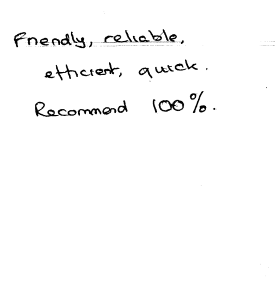 Friendly, reliable,
efficient, quick.
Recommend 100%.